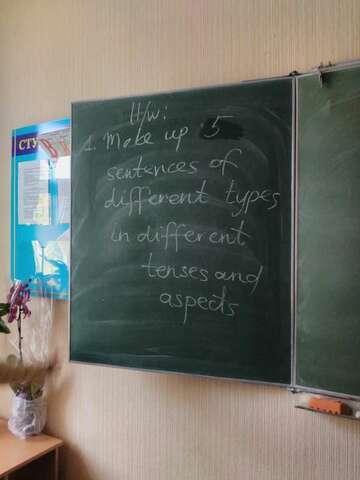 H/w:
1. Make up 5
sentences of
different types
in different
tenses and
aspects
СТУ